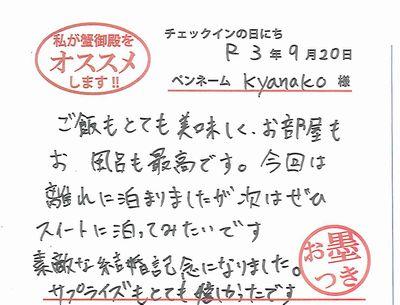 私が蟹御殿を
オススメ
します!!
チェックインの日にち
R3年9月20日
ペンネーム Kyanako 様
ご飯もとても美味しく、お部屋も
お 風呂も最高です。今回は
離れに泊まりましたが次はぜひ
スイートに泊ってみたいです
素敵な結婚記念になりました。
サプライズもとても嬉しかったです
お墨
つき